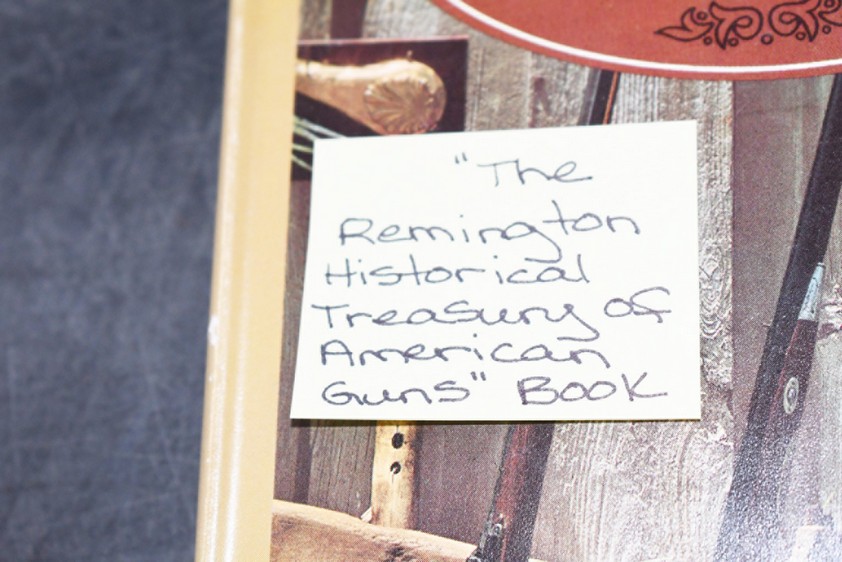 "The
Remington
Historical
Treasury of
American
Guns" Book